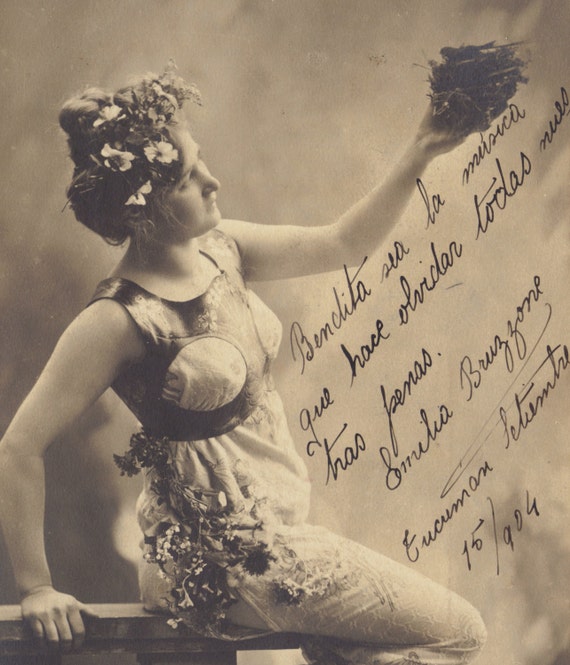 Bendita sea la música
que hace olvidar todas nues
tras penas.
Emilia Bruzzone
Tucuman Setiembre
15/904